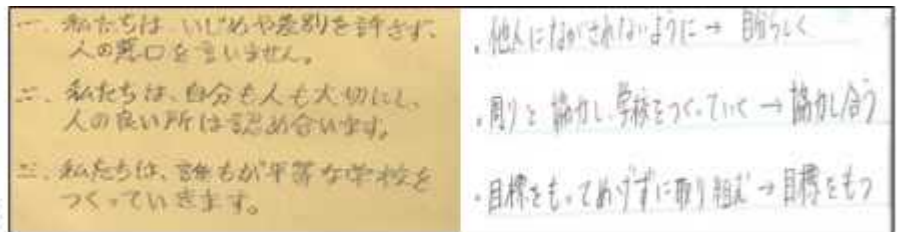 一、私たちは、いじめや差別を許さず、
人の悪口を言いません。
二、私たちは、自分も人も大切にし、
人の良い所は認め合います。
三、私たちは、誰もが平等な学校を
つくっていきます。
・他人にながされないように→自分らしく
・周りと協力し、学校をつくっていく→協力し合う
・目標をもってめげずに取り組む→目標をもつ